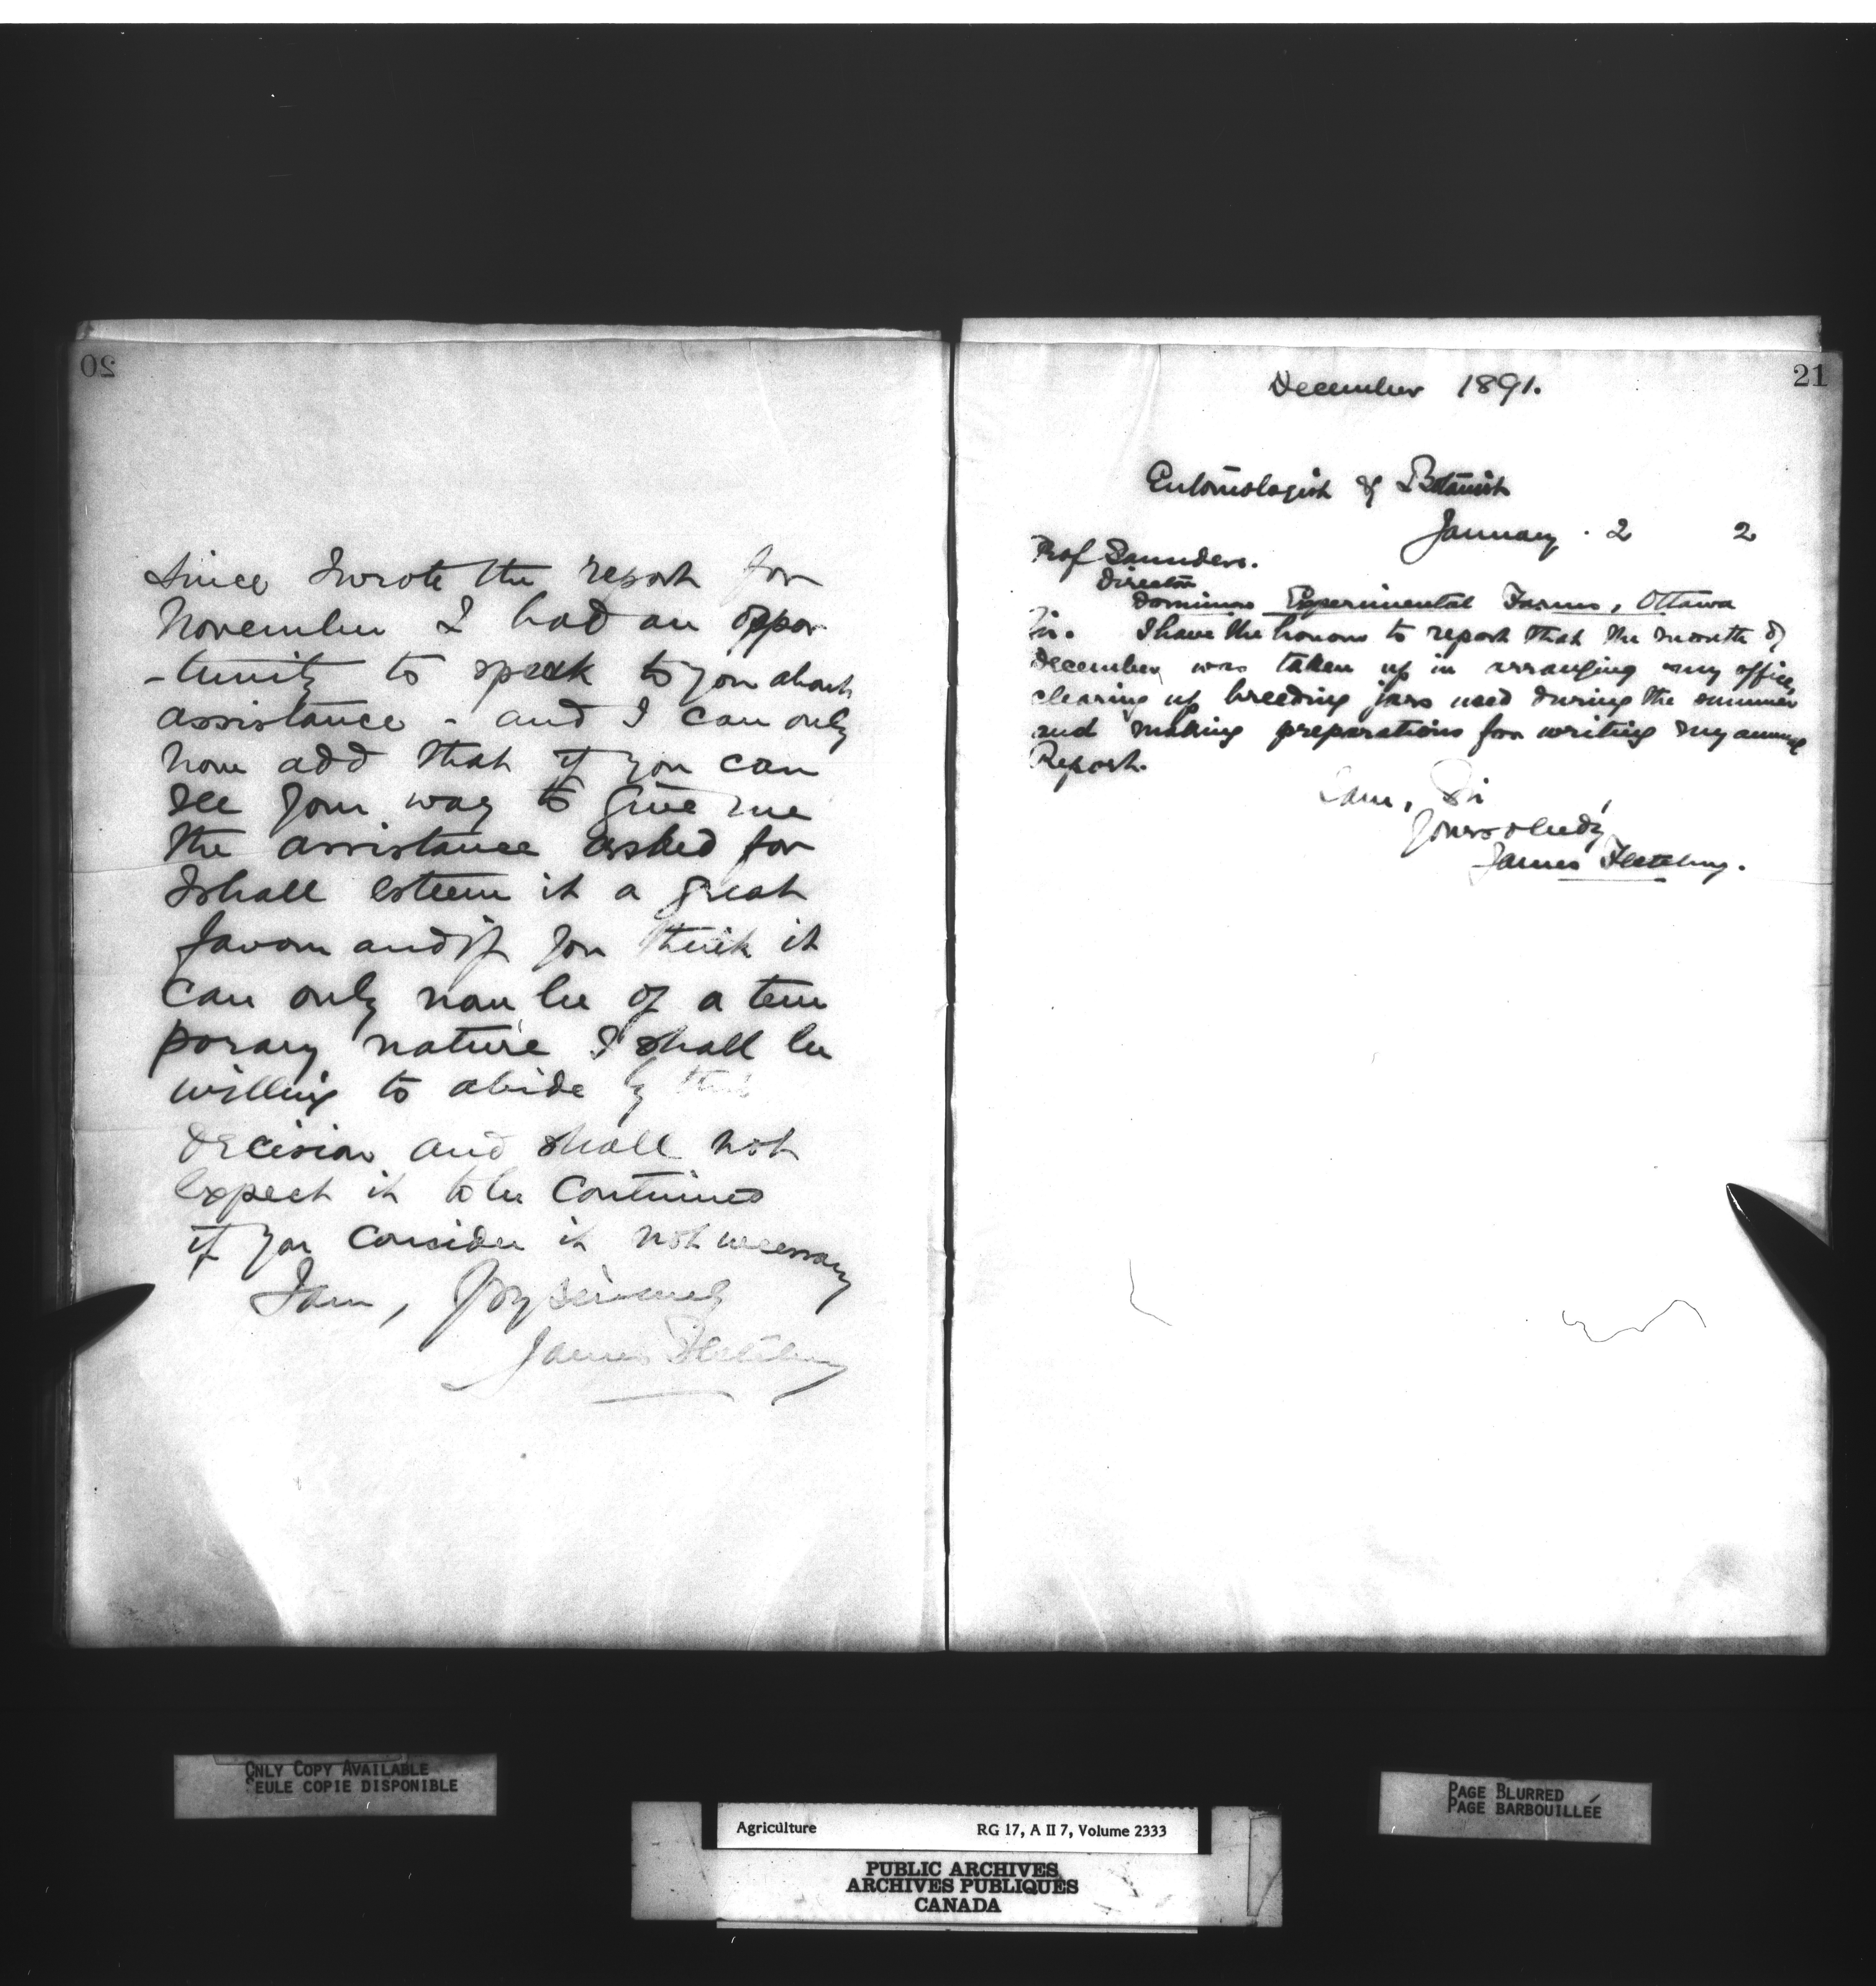 20
Since I wrote the report for
November I had an oppor
-tunity to speak to you about
assistance - and I can only
now add that if you can
see your way to give me
the assistance asked for
I shall esteem it a great
favour and if you think it
can only now be of a tem
porary nature I shall be
willing to abide by that
decision and shall not
expect it to be continued
if you consider it not necessary
I am, sincerely
James Fletcher
21
December 1891.
Entomologist & Botanist
January . 2 2
Prof Saunders.
Director
Dominion Experimental Farms, Ottawa
Sir. I have the honour to report that the month of
December was taken up in arranging my office,
clearing up breeding jars used during the summer
and making preparations for writing my annual
Report.
I am, Sir
Yours obedly
James Fletcher.
ONLY COPY AVAILABLE
SEULE COPIE DISPONIBLE
PAGE BLURRED
PAGE BARBOUILLÉE
Agriculture RG 17, A II 7, Volume 2333
PUBLIC ARCHIVES
ARCHIVES PUBLIQUES
CANADA